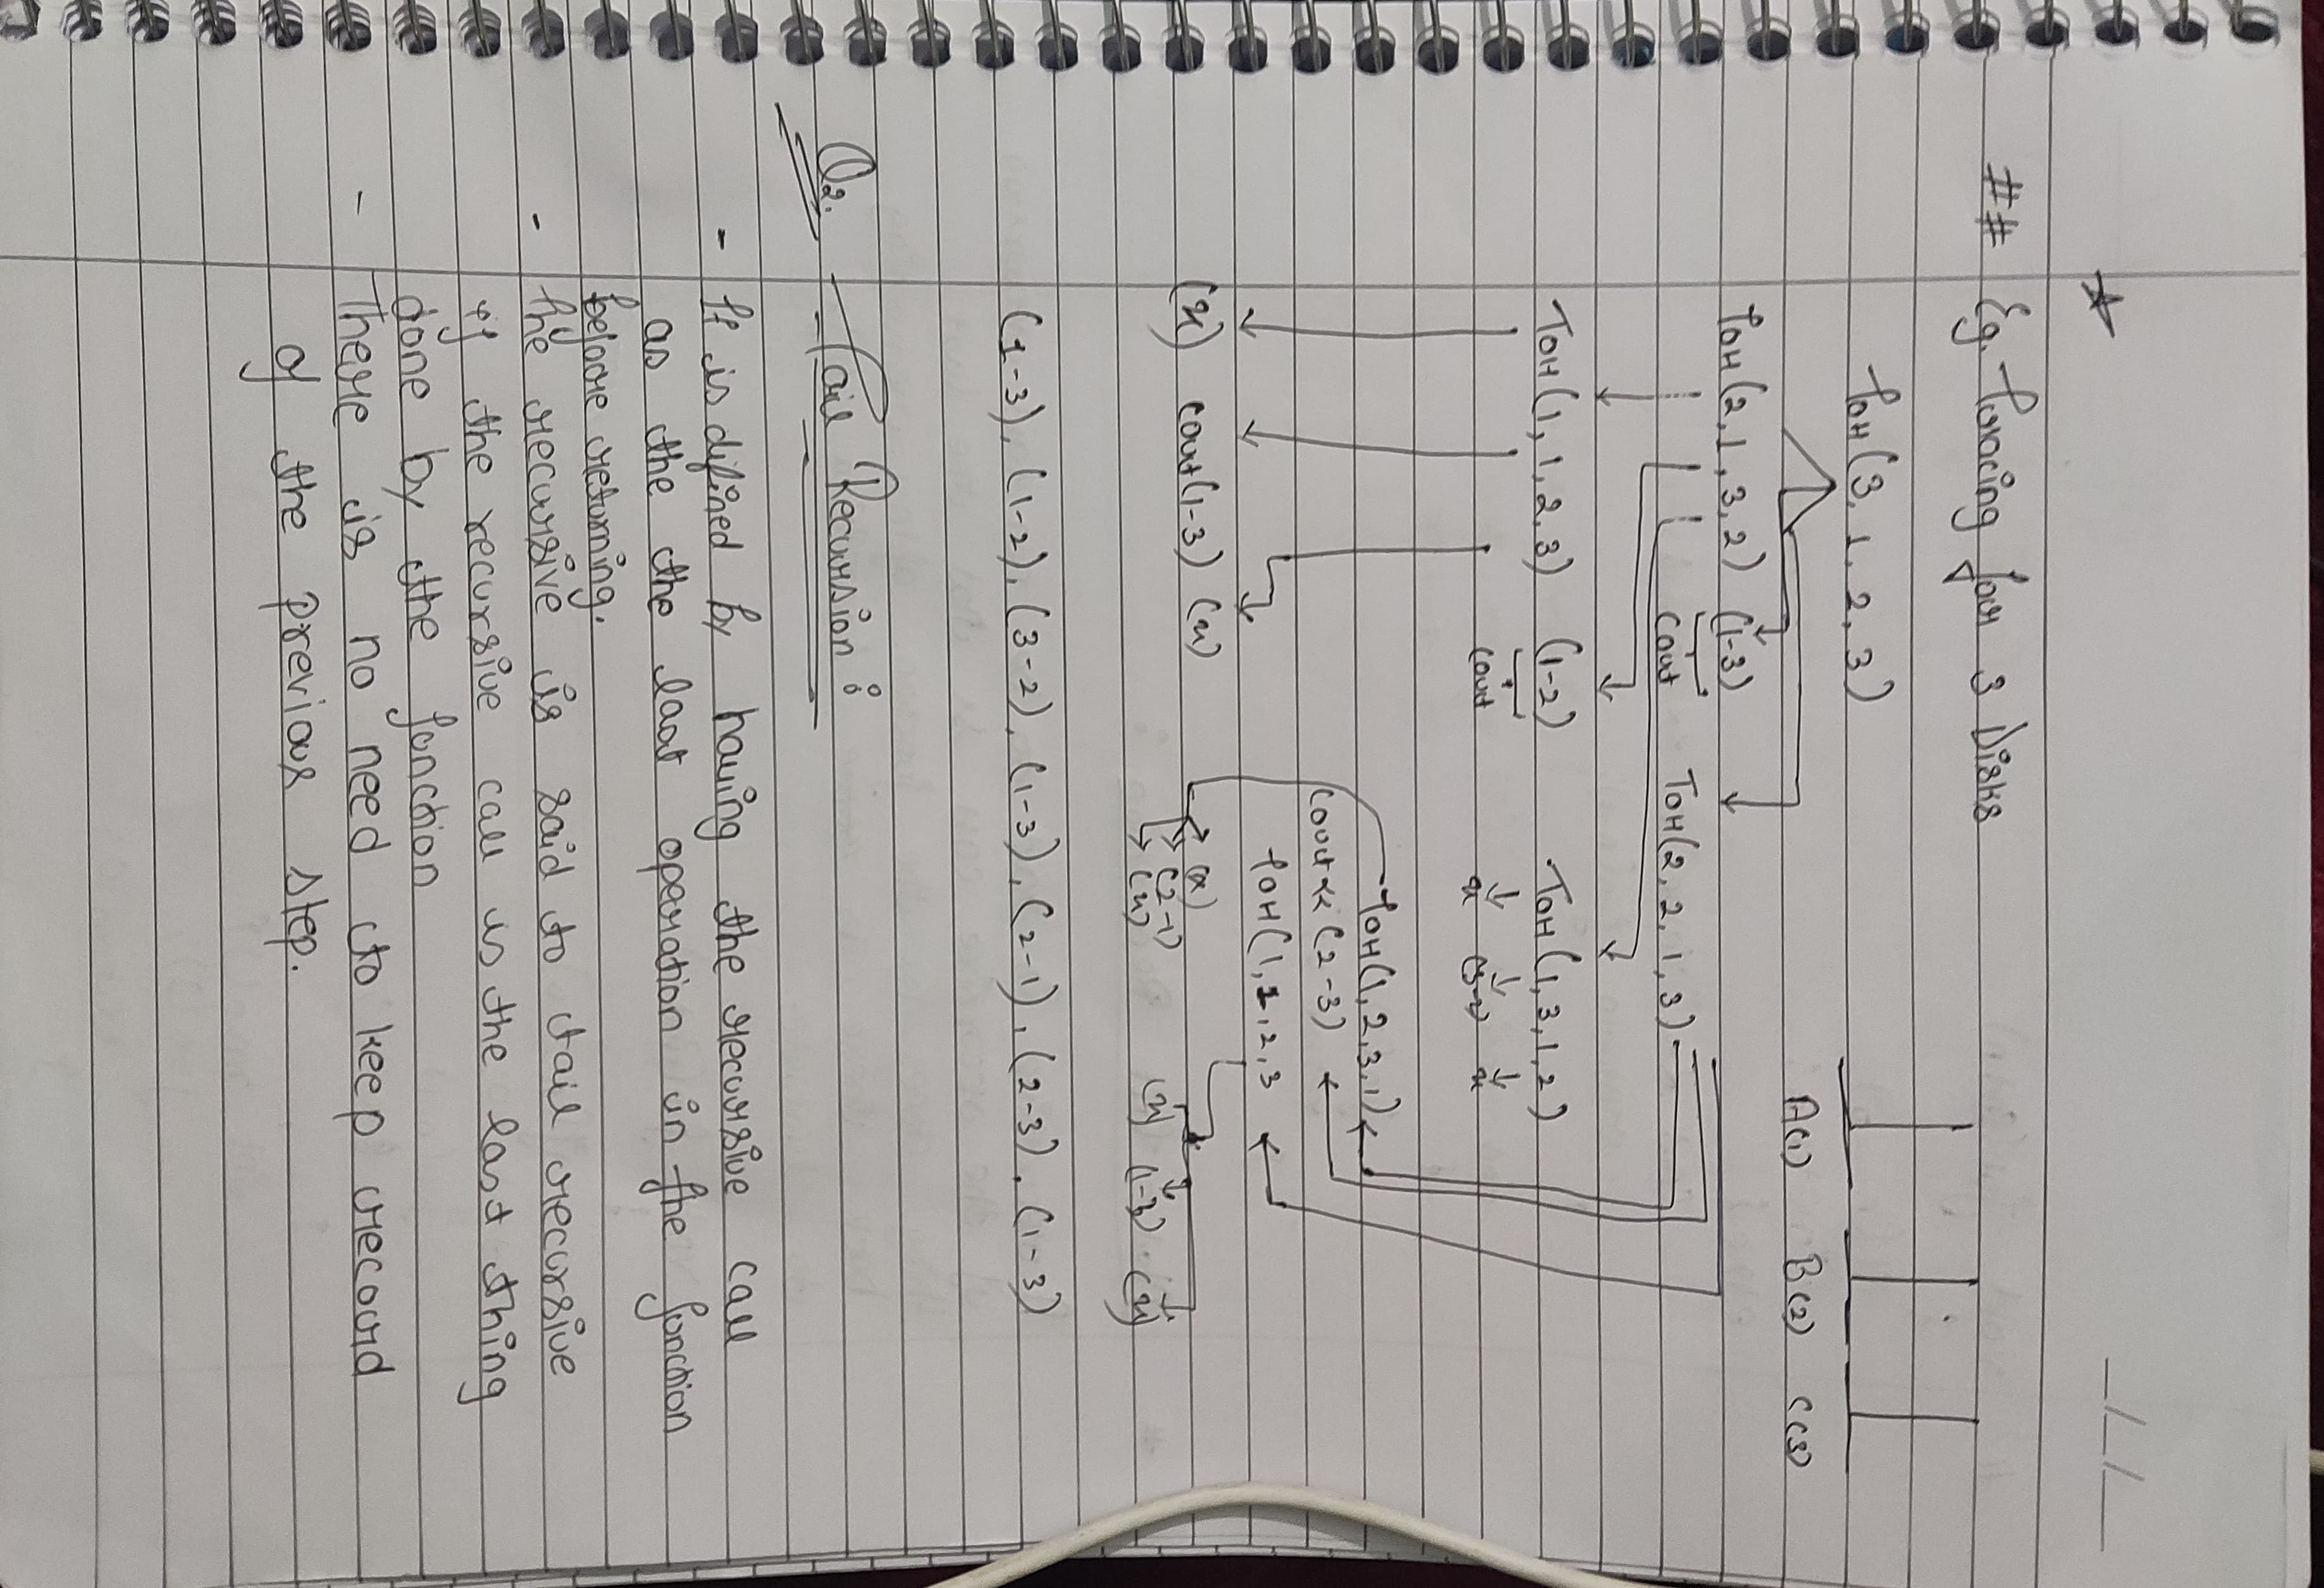 ★
## Eg. Tracing for 3 Disks
TOH(3, 1, 2, 3)
A(1) B(2) C(3)
TOH(2, 1, 3, 2) (1-3)
cout TOH(2, 2, 1, 3)
TOH(1, 1, 2, 3) (1-2) TOH(1, 3, 1, 2)
cout x (3-2) x
TOH(1, 2, 3, 1)
cout << (2-3)
TOH(1, 1, 2, 3
(x) cout(1-3) (x) (x)
(2-1) (x) (1-3) (x)
(x)
(1-3), (1-2), (3-2), (1-3), (2-1), (2-3), (1-3)
Q2. Tail Recursion :
- It is defined by having the recursive call
as the the last operation in the function
before returning.
- The recursive is said to tail recursive
if the recursive call is the last thing
done by the function
- There is no need to keep record
of the previous step.